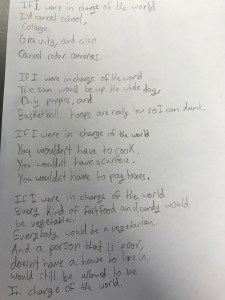 If I were in charge of the world
I'd cancel school,
College,
Gravity, and also
Cancel radar cameras.
If I were in charge of the world
The sun would be up the whole day,
Only purple, and
Basketball hoops are really low so I can dunk.
If I were in charge of the world
You wouldn't have to cook.
You wouldn't have a curfew.
You wouldn't have to pay taxes.
If I were in charge of the world
Every kind of fast food and candy would
be vegetarian.
Everybody would be a vegetarian.
And a person that is poor,
doesn't have a home to live in,
would still be allowed to be
In charge of the world.